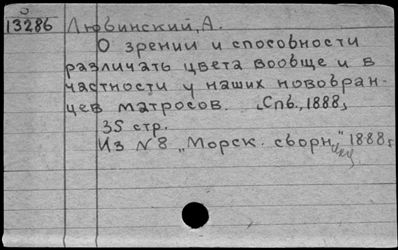 13286 Любинский, А.
О зрении и способности
различать цвета вообще и в
частности у наших новобран-
цев матросов. [Спб., 1888]
35 стр.
Из №8 „Морск. сборн." 1888